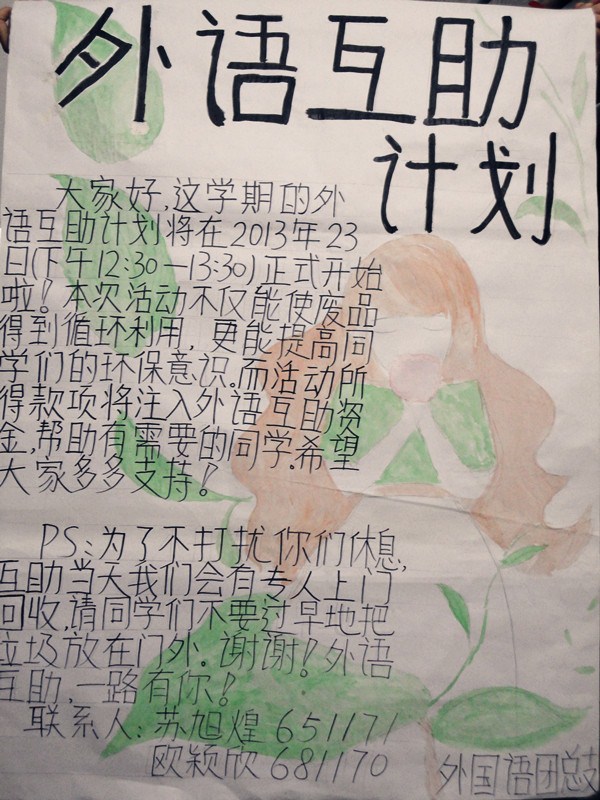 外语互助
计划
大家好,这学期的外
语互助计划将在2013年23
日(下午12:30—13:30)正式开始
啦!本次活动不仅能使废品
得到循环利用,更能提高同
学们的环保意识。而活动所
得款项将注入外语互助资
金,帮助有需要的同学。希望
大家多多支持!
PS:为了不打扰你们休息,
互助当天我们会有专人上门
回收,请同学们不要过早地把
垃圾放在门外。谢谢!外语
互助,一路有你!
联系人:苏旭煌 651171
欧颖欣 681170
外国语团总支